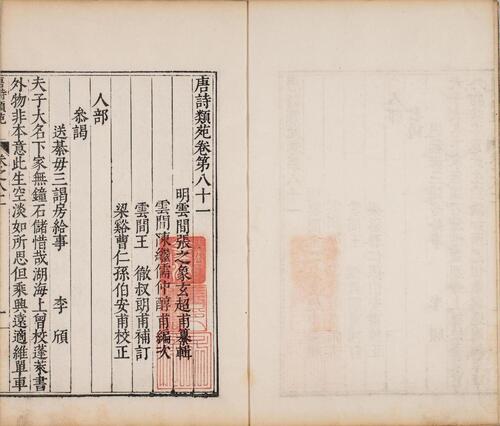 唐詩類苑卷第八十一
明雲間張之象玄超甫纂輯
雲間陳繼儒仲醇甫編次
雲間王 徹叔朗甫補訂
梁谿曹仁孫伯安甫校正
人部
叅謁
送綦毋三謁房給事 李頎
夫子大名下家無鐘石儲惜哉湖海上曾校蓬萊書
外物非本意此生空淡如所思但乘興遠適維單車
唐詩類苑
卷之八十一
一